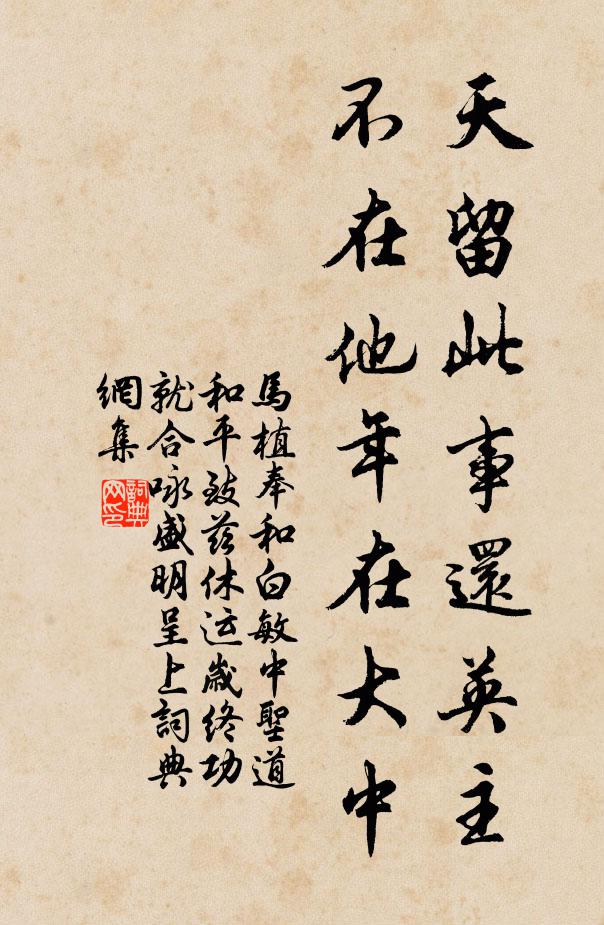 天留此事還英主
不在他年在大中
馬植奉和白敏中聖道
和平致茲休運歲終功
就合咏盛明呈上詞典
網集
詞典
网印